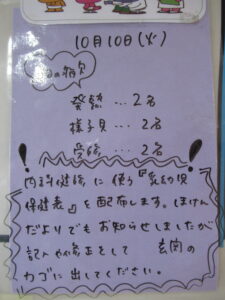 10月10日(火)
の病欠
発熱 … 2名
様子見 … 2名
受診 … 2名
内科健診に使う『乳幼児
保健表』を配布します。ほけん
だよりでもお知らせしましたが
記入や修正をして 玄関の
カゴに出してください。